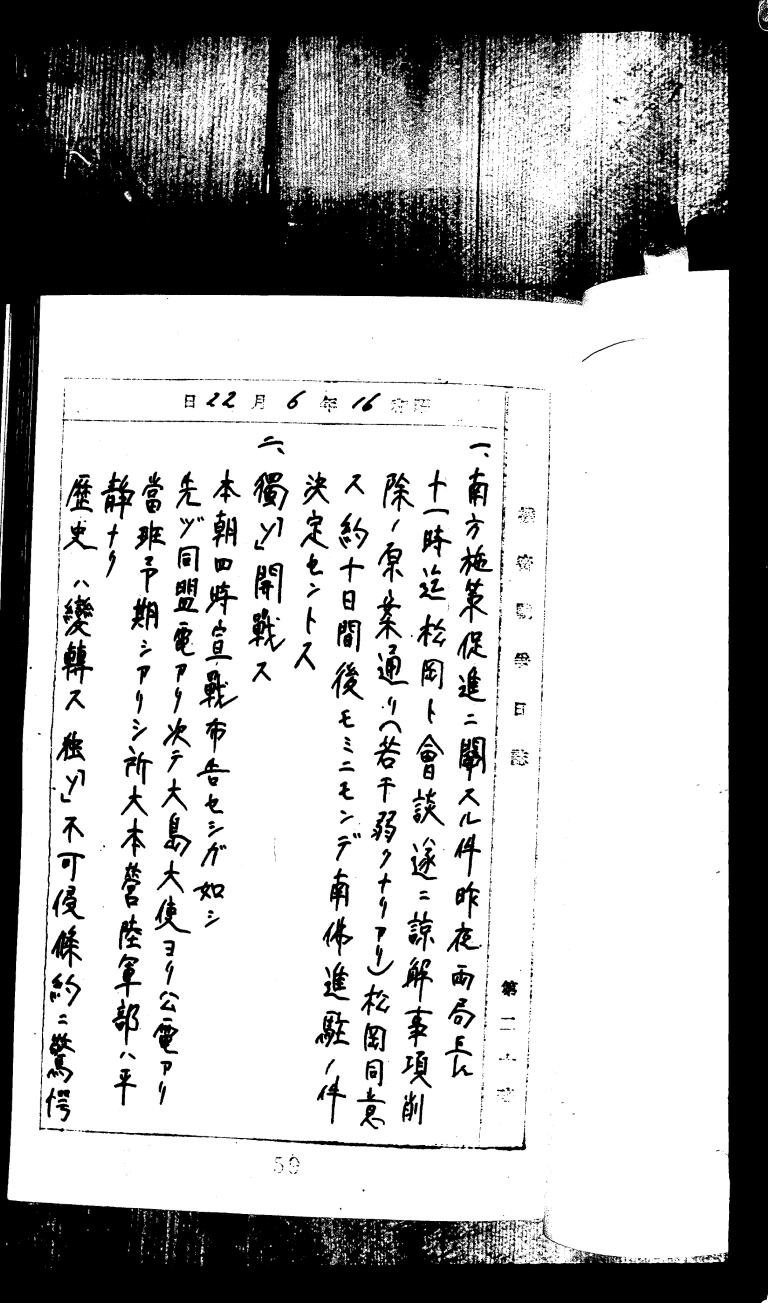 機密戰爭日誌
第二十班
昭和16年6月22日
一、南方施策促進ニ關スル件昨夜両局長
十一時迄松岡ト會談遂ニ諒解事項削
除ノ原案通リ(若干弱クナリアリ)松岡同意
ス約十日間後モミニモンデ南佛進駐ノ件
決定セントス
二、獨「ソ」開戰ス
本朝四時宣戰布告セシガ如シ
先ヅ同盟電アリ次テ大島大使ヨリ公電アリ
當班予期シアリシ所大本營陸軍部ハ平
静ナリ
歷史ハ變轉ス独「ソ」不可侵條約ニ驚愕
50